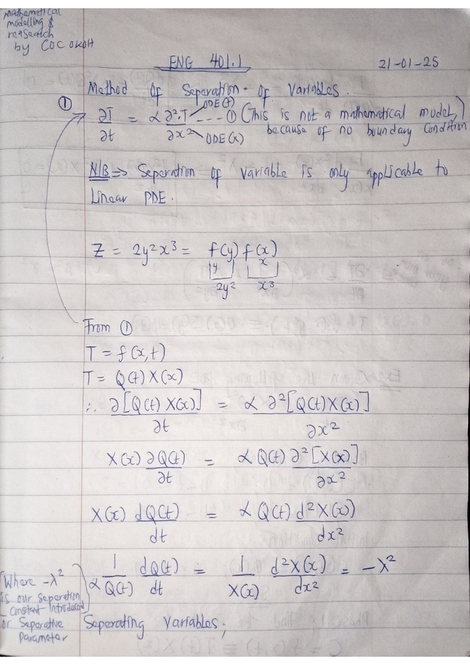 mathematical
modelling &
research
by COC OKOH
ENG 401.1
21-01-25
Method Of Seperation Of Variables.
① ∂T/∂t = α ∂²T/∂x² --- ① (This is not a mathematical model) because of no boundary condition
ODE(t)
ODE(x)
N/B => Seperation Of Variable is only applicable to
Linear PDE.
Z = 2y²x³ = f(y) f(x)
y x
2y² x³
From ①
T = f(x,t)
T = Q(t) X(x)
∴ ∂[Q(t) X(x)]/∂t = α ∂²[Q(t)X(x)]/∂x²
X(x) ∂Q(t)/∂t = α Q(t) ∂²[X(x)]/∂x²
X(x) dQ(t)/dt = α Q(t) d²X(x)/dx²
1/αQ(t) dQ(t)/dt = 1/X(x) d²X(x)/dx² = -λ²
(Where -λ²
is our Seperation
constant introduced
or Seperative
Parameter
Seperating Variables;